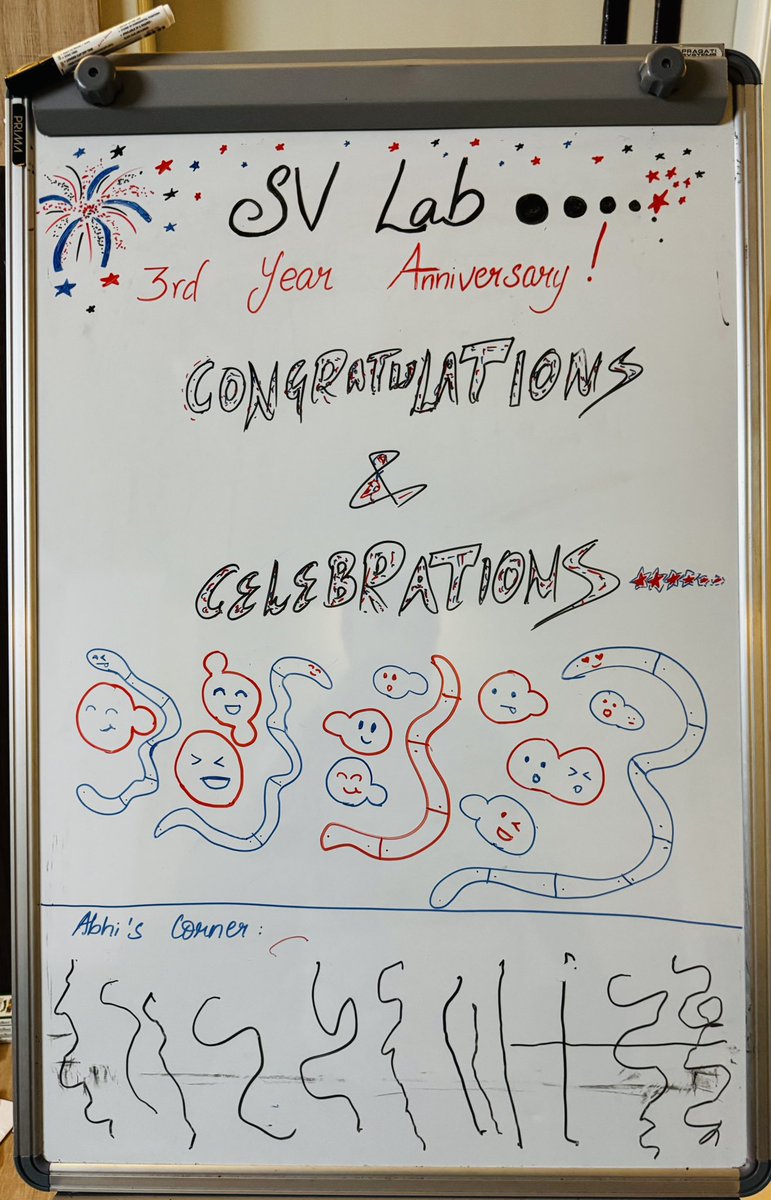 PRAGATI
SYSTEMS
PRIMA
SV Lab
3rd Year Anniversary!
CONGRATULATIONS
&
CELEBRATIONS
Abhi's Corner: